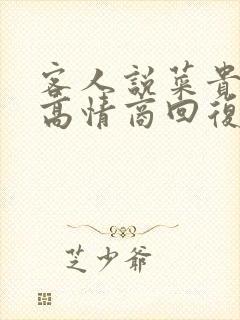 客人説菜貴
高情商回復
芝少爺